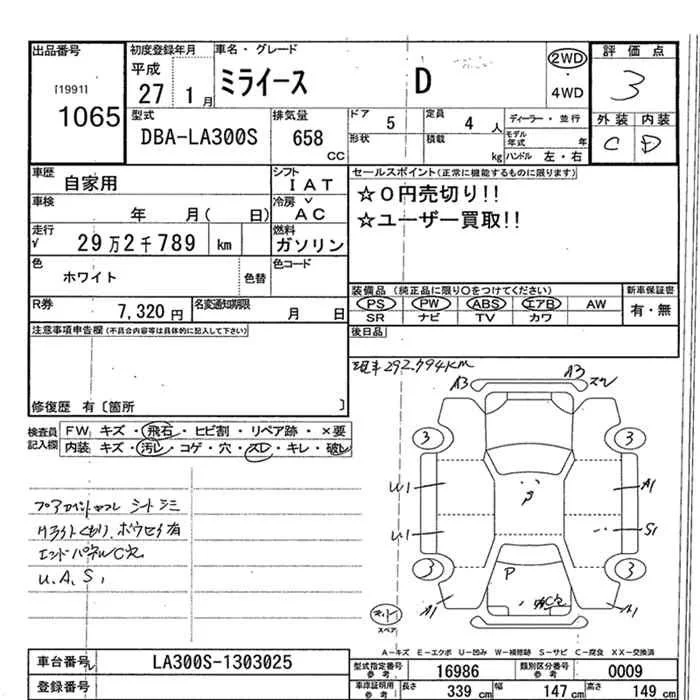 出品番号 初度登録年月 車名・グレード 評価点
[1991] 1065
平成 27 1月
ミライース D
2WD ・ 4WD
3
外装 内装
C D
型式 DBA-LA300S
排気量 658 CC
ドア 5
定員 4 人
ディーラー・並行
形状 積載 kg
モデル年式 年
ハンドル 左・右
車歴 自家用
シフト IAT
車検 年 月( 日)
冷房 AC
走行 √ 29万2千789 km
燃料 ガソリン
色 ホワイト 色替
色コード
R券 7,320円
名変通知期限 月 日
セールスポイント(正常に機能するものに限ります)
☆0円売切り!!
☆ユーザー買取!!
装備品(純正品に限り○をつけてください) 新車保証書
PS PW ABS エアB AW 有・無
SR ナビ TV カワ
後日品
注意事項申告欄(不具合内容等は具体的に記入して下さい)
修復歴 有〔箇所 〕
検査員記入欄
FW キズ・飛石・ヒビ割・リペア跡・×要
内装 キズ・汚レ・コゲ・穴・スレ・キレ・破レ
現車292,794KM
A3 A3
3 3
U1 A1
U1 S1
3 3
P
A1
シートシミ
エンドパネルC穴
U.A.S,
スペア
A-キズ E-エクボ U-凹み W-補修跡 S-サビ C-腐食 XX-交換済
車台番号 LA300S-1303025
登録番号
型式指定番号 参考 16986
類別区分番号 参考 0009
車庫証明用 参考 長さ 339 cm 幅 147 cm 高さ 149 cm